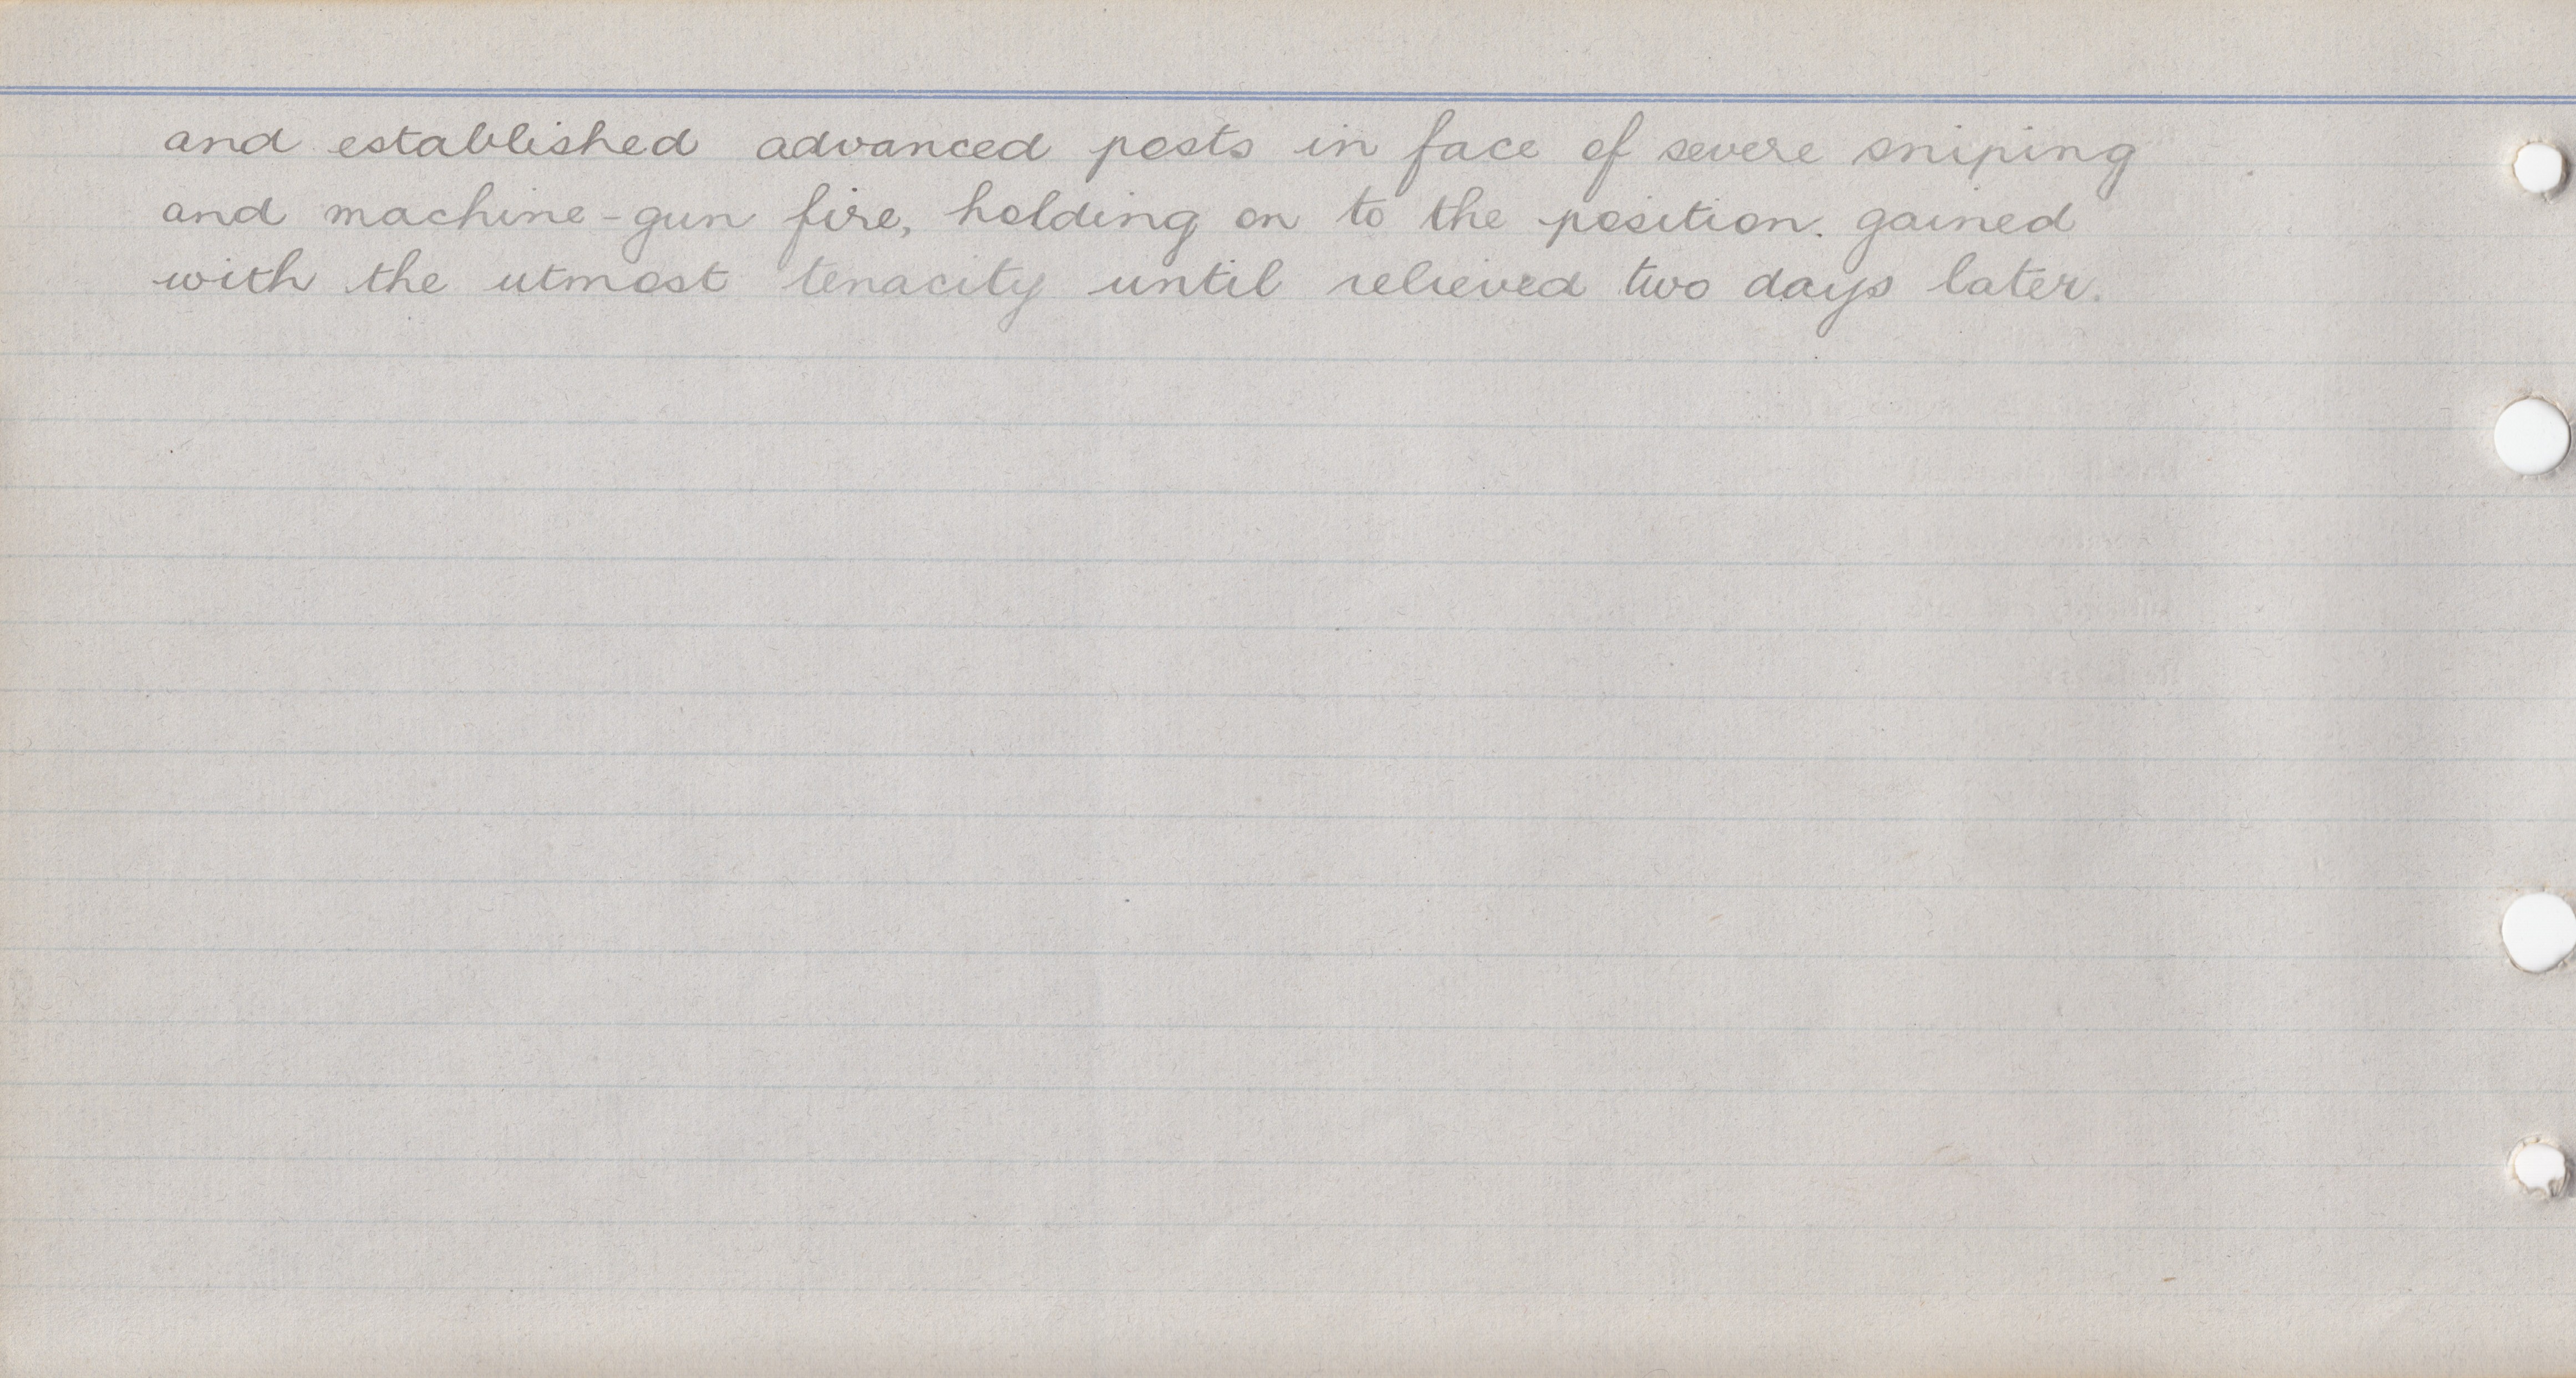 and established advanced posts in face of severe sniping
and machine-gun fire, holding on to the position. gained
with the utmost tenacity until relieved two days later.